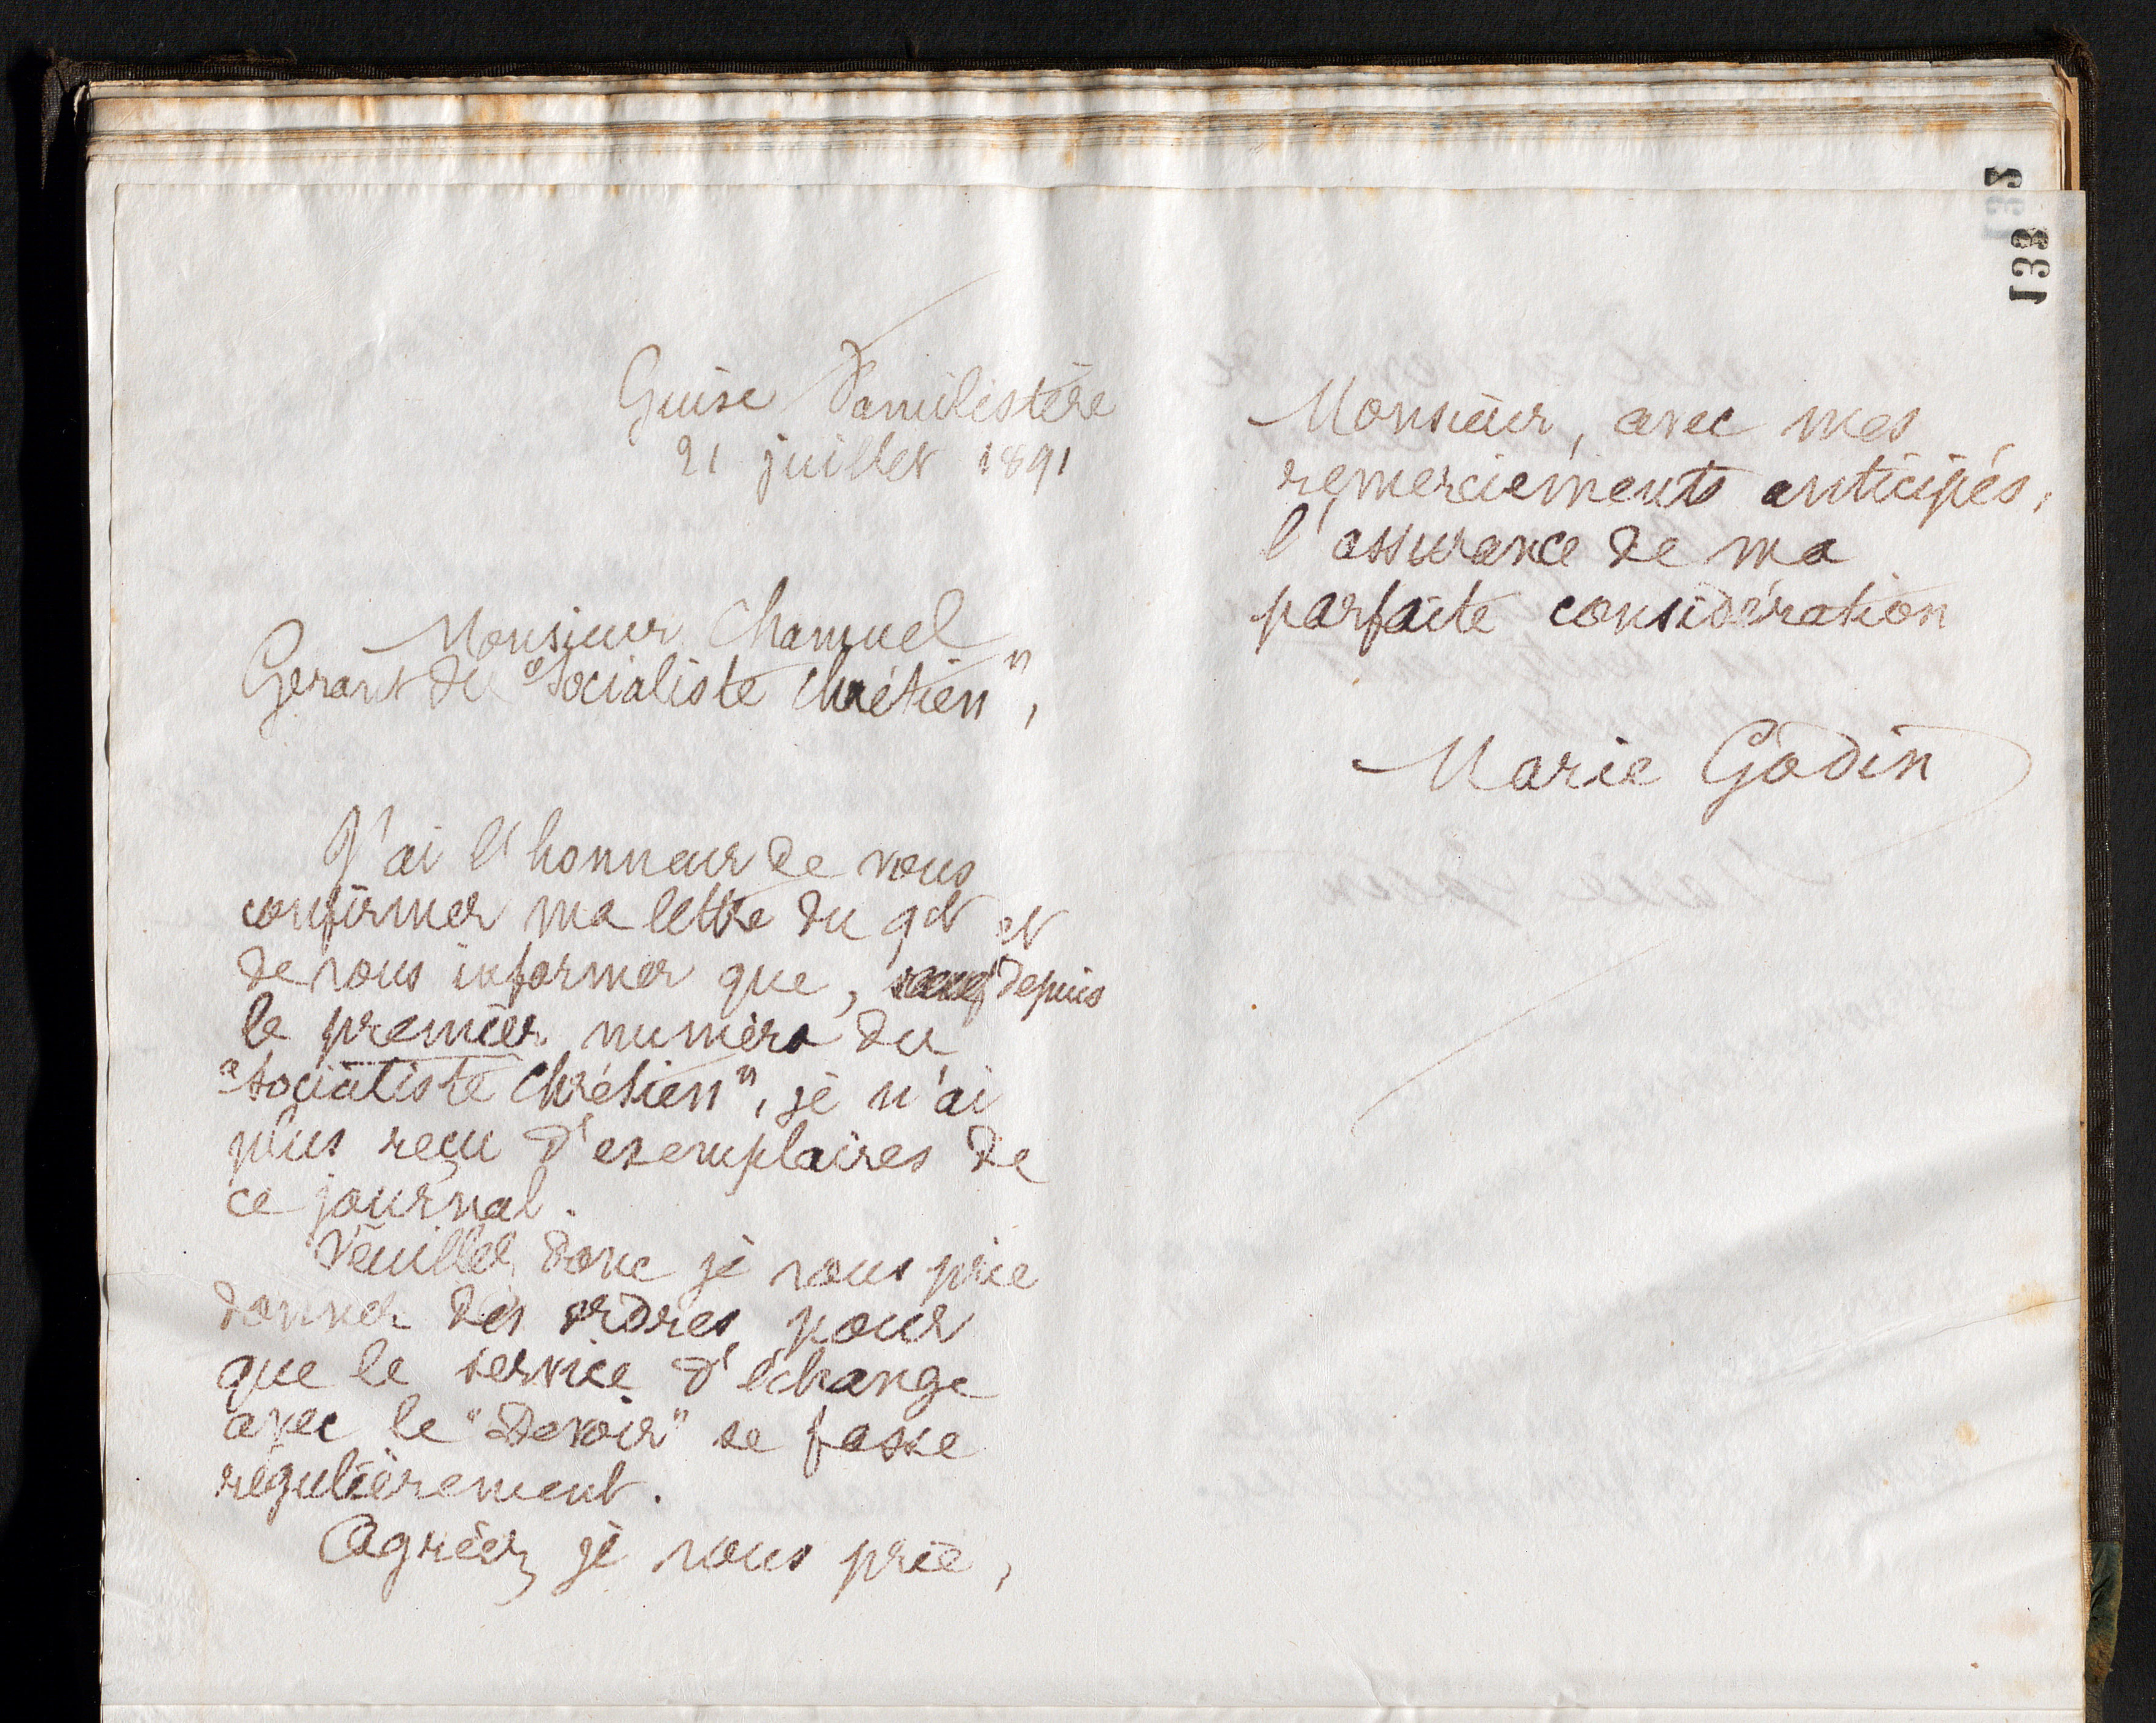 138
Guise Familistère
21 juillet 1891
Monsieur Chamuel
Gerant du "Socialiste chrétien",
J'ai l'honneur de vous
confirmer ma lettre du 9 ct et
de vous informer que, depuis
le premier numéro du
"Socialiste Chrétien", je n'ai
plus reçu d'exemplaires de
ce journal.
Veuillez donc je vous prie
donner des ordres pour
que le service d'échange
avec le "Devoir" se fasse
régulièrement.
Agréez je vous prie,
Monsieur, avec mes
remerciements anticipés,
l'assurance de ma
parfaite considération
Marie Godin